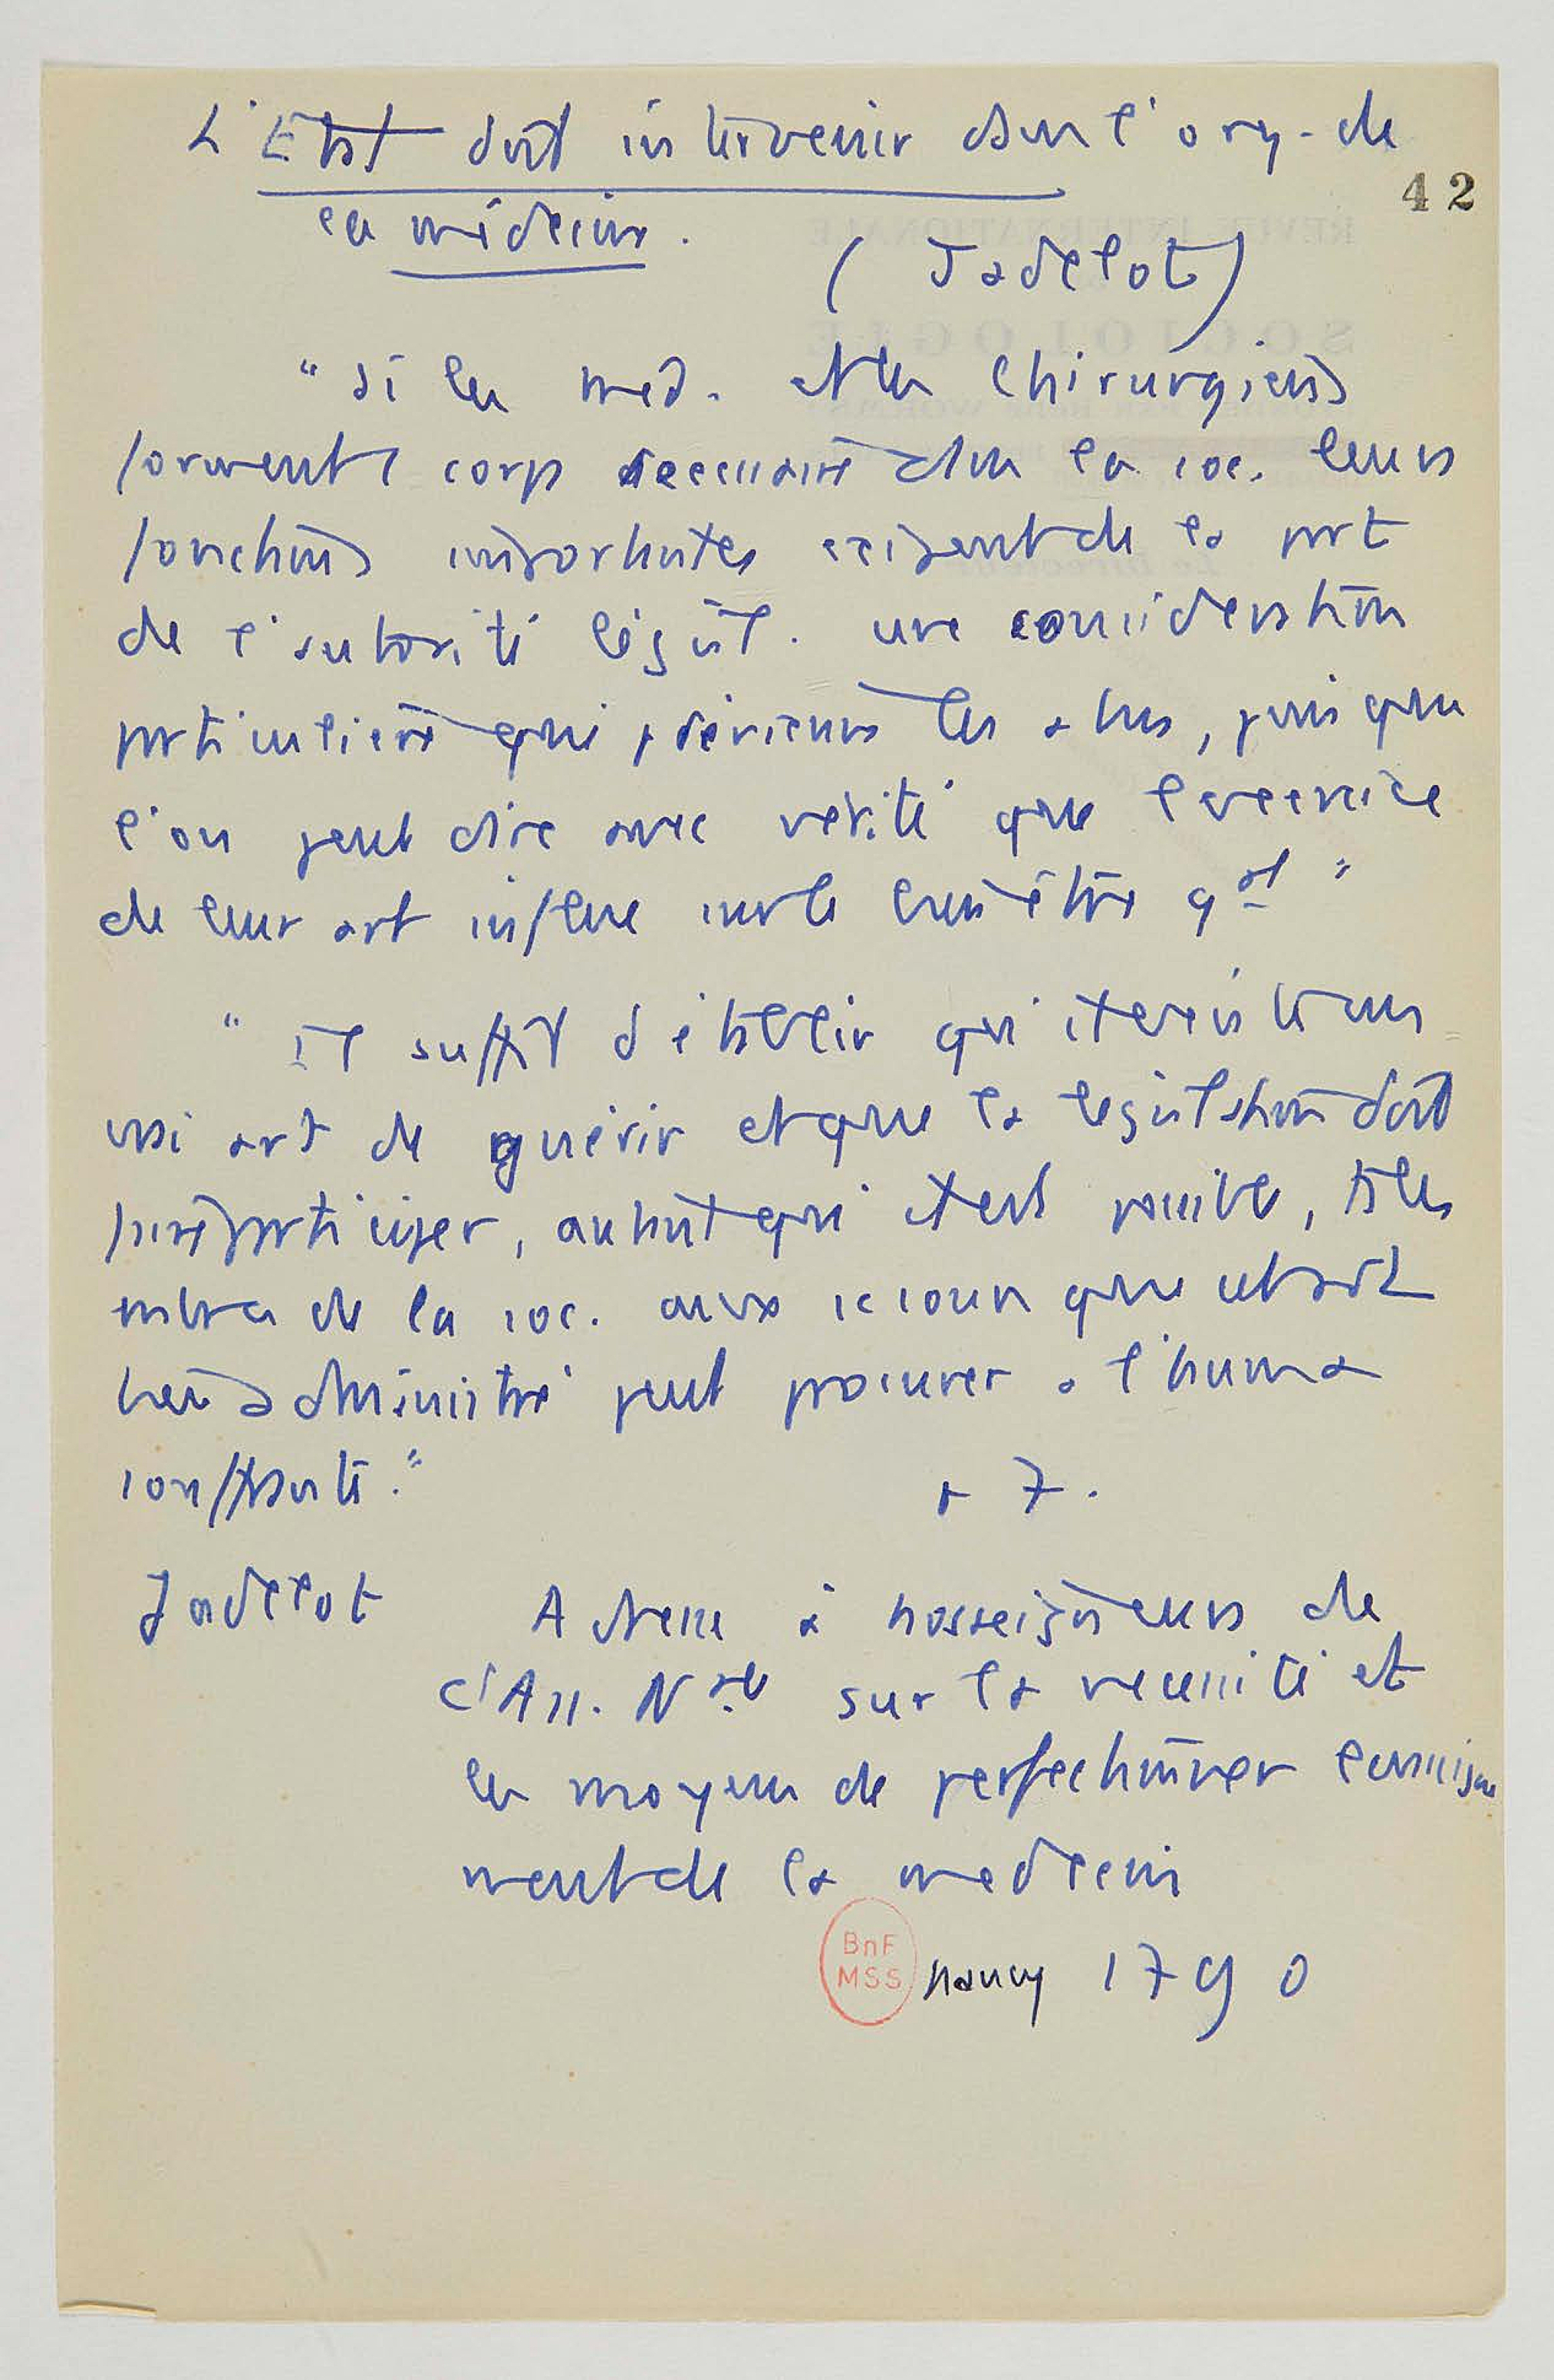 L'Etat doit intervenir dans l'org. de
42
la médecine.
(Jadelot)
"Si les med. et les chirurgiens
forment 1 corps necessaire dans la soc. leurs
fonctions importantes exigent de la part
de l'autorité législ. une consideration
particulière qui prévienne les abus, puisque
l'on peut dire avec vérité que l'exercice
de leur art influe sur le bien être gal"
"Il suffit d'établir qu'il existe un
vrai art de guérir et que la legislation doit
faire participer, autant qu'il est possible, ts les
mbres de la soc. aux secours que cet art
bien administré peut procurer a l'huma
souffrante."
p 7.
Jadelot Adresse à nosseigneurs de
l'Ass. Nale sur la necessité et
les moyens de perfectionner l'enseigne
ment de la medecin
BnF
MSS
Nancy 1790